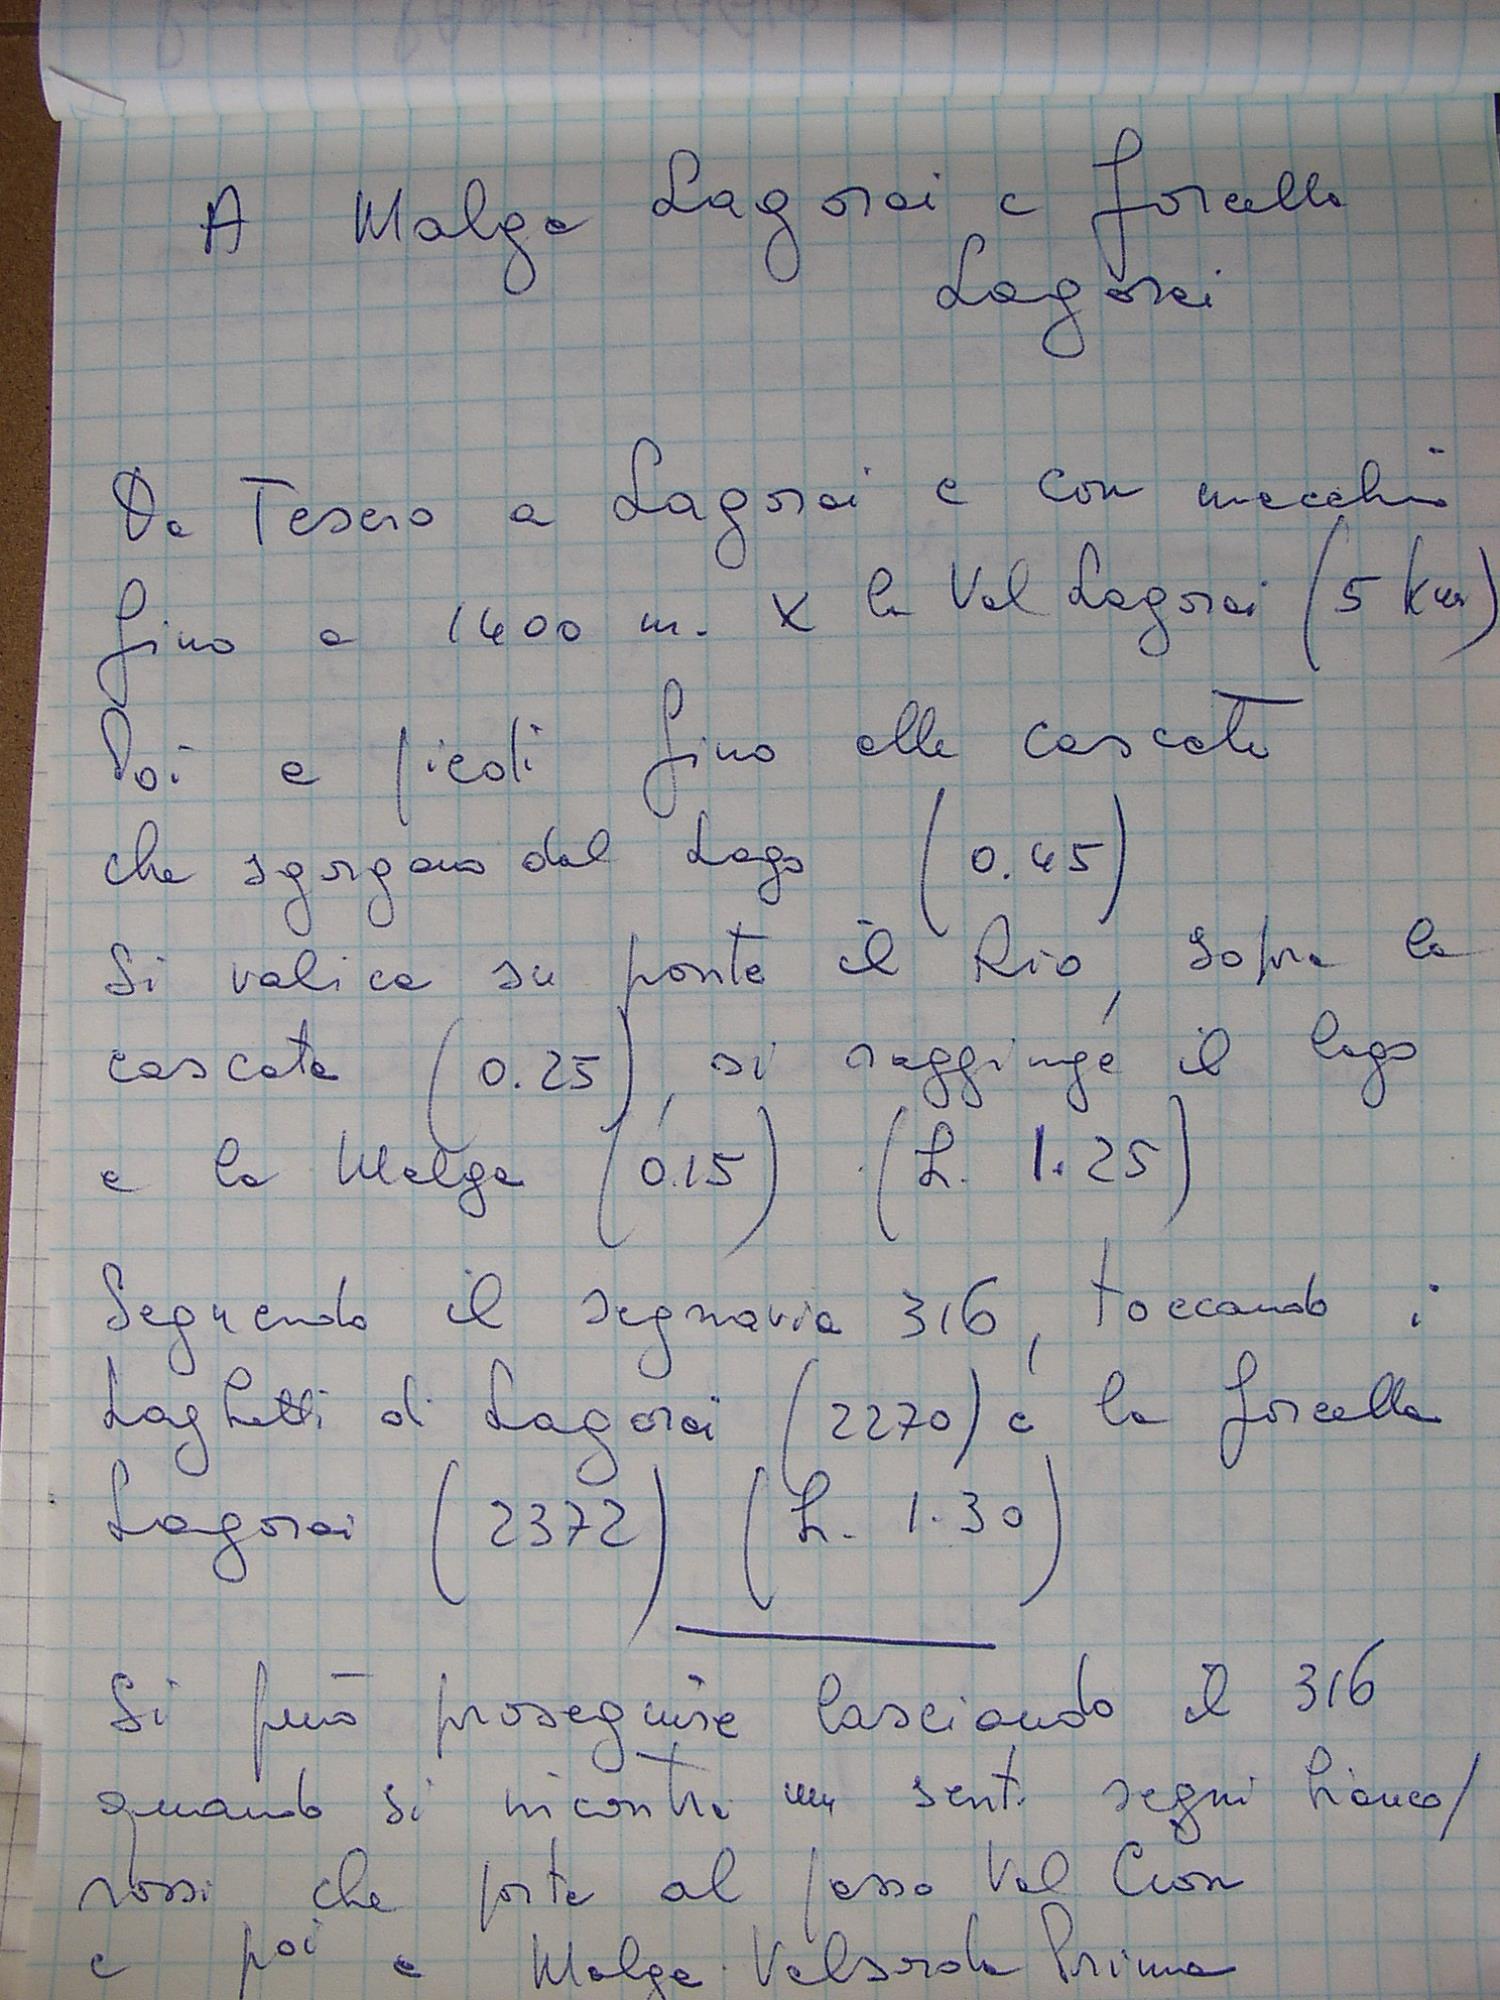 A Malga Lagorai e forcella
Lagorai
Da Tesero a Lagorai e con macchina
fino a 1400 m. x la Val Lagorai (5 km)
Poi a piedi fino alle cascate
che sgorgano dal Lago (0.45)
Si valica su ponte il Rio, sopra la
cascata (0.25), si raggiunge il lago
e la Malga (0.15) (h. 1.25)
Seguendo il segnavia 316, toccando i
Laghetti di Lagorai (2270) e la forcella
Lagorai (2372) (h. 1.30)
Si può proseguire lasciando il 316
quando si incontra un sent. segni bianco/
rossi che porta al passo Val Cion
e poi a Malga Valsorda Prima